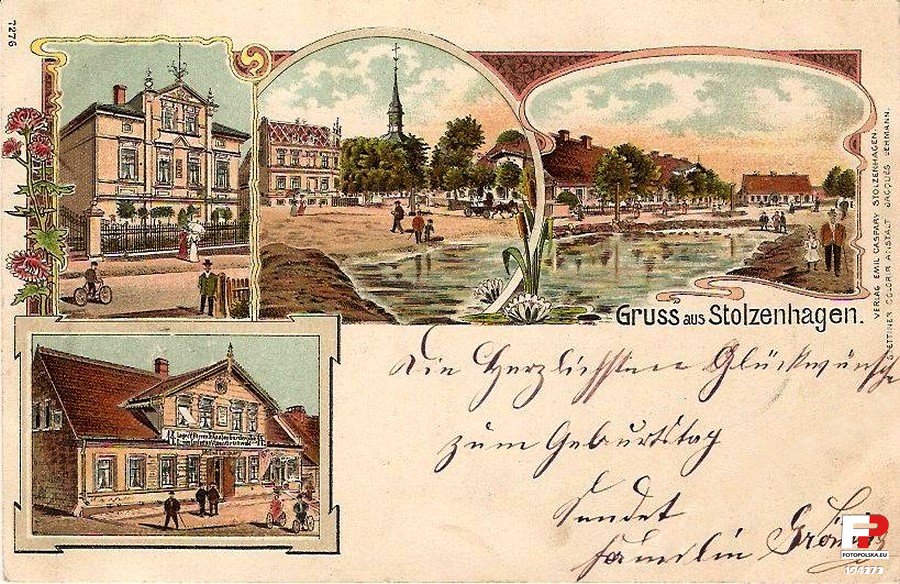 7276.
Gruss aus Stolzenhagen.
VERLAG EMIL CASPARY STOLZENHAGEN.
STETTINER COLORIR ANSTALT JACQUES LEHMANN.
Die Herzlichsten Glückwünsche
zum Geburtstag
Sendet
Familie
FOTOPOLSKA.EU
194773